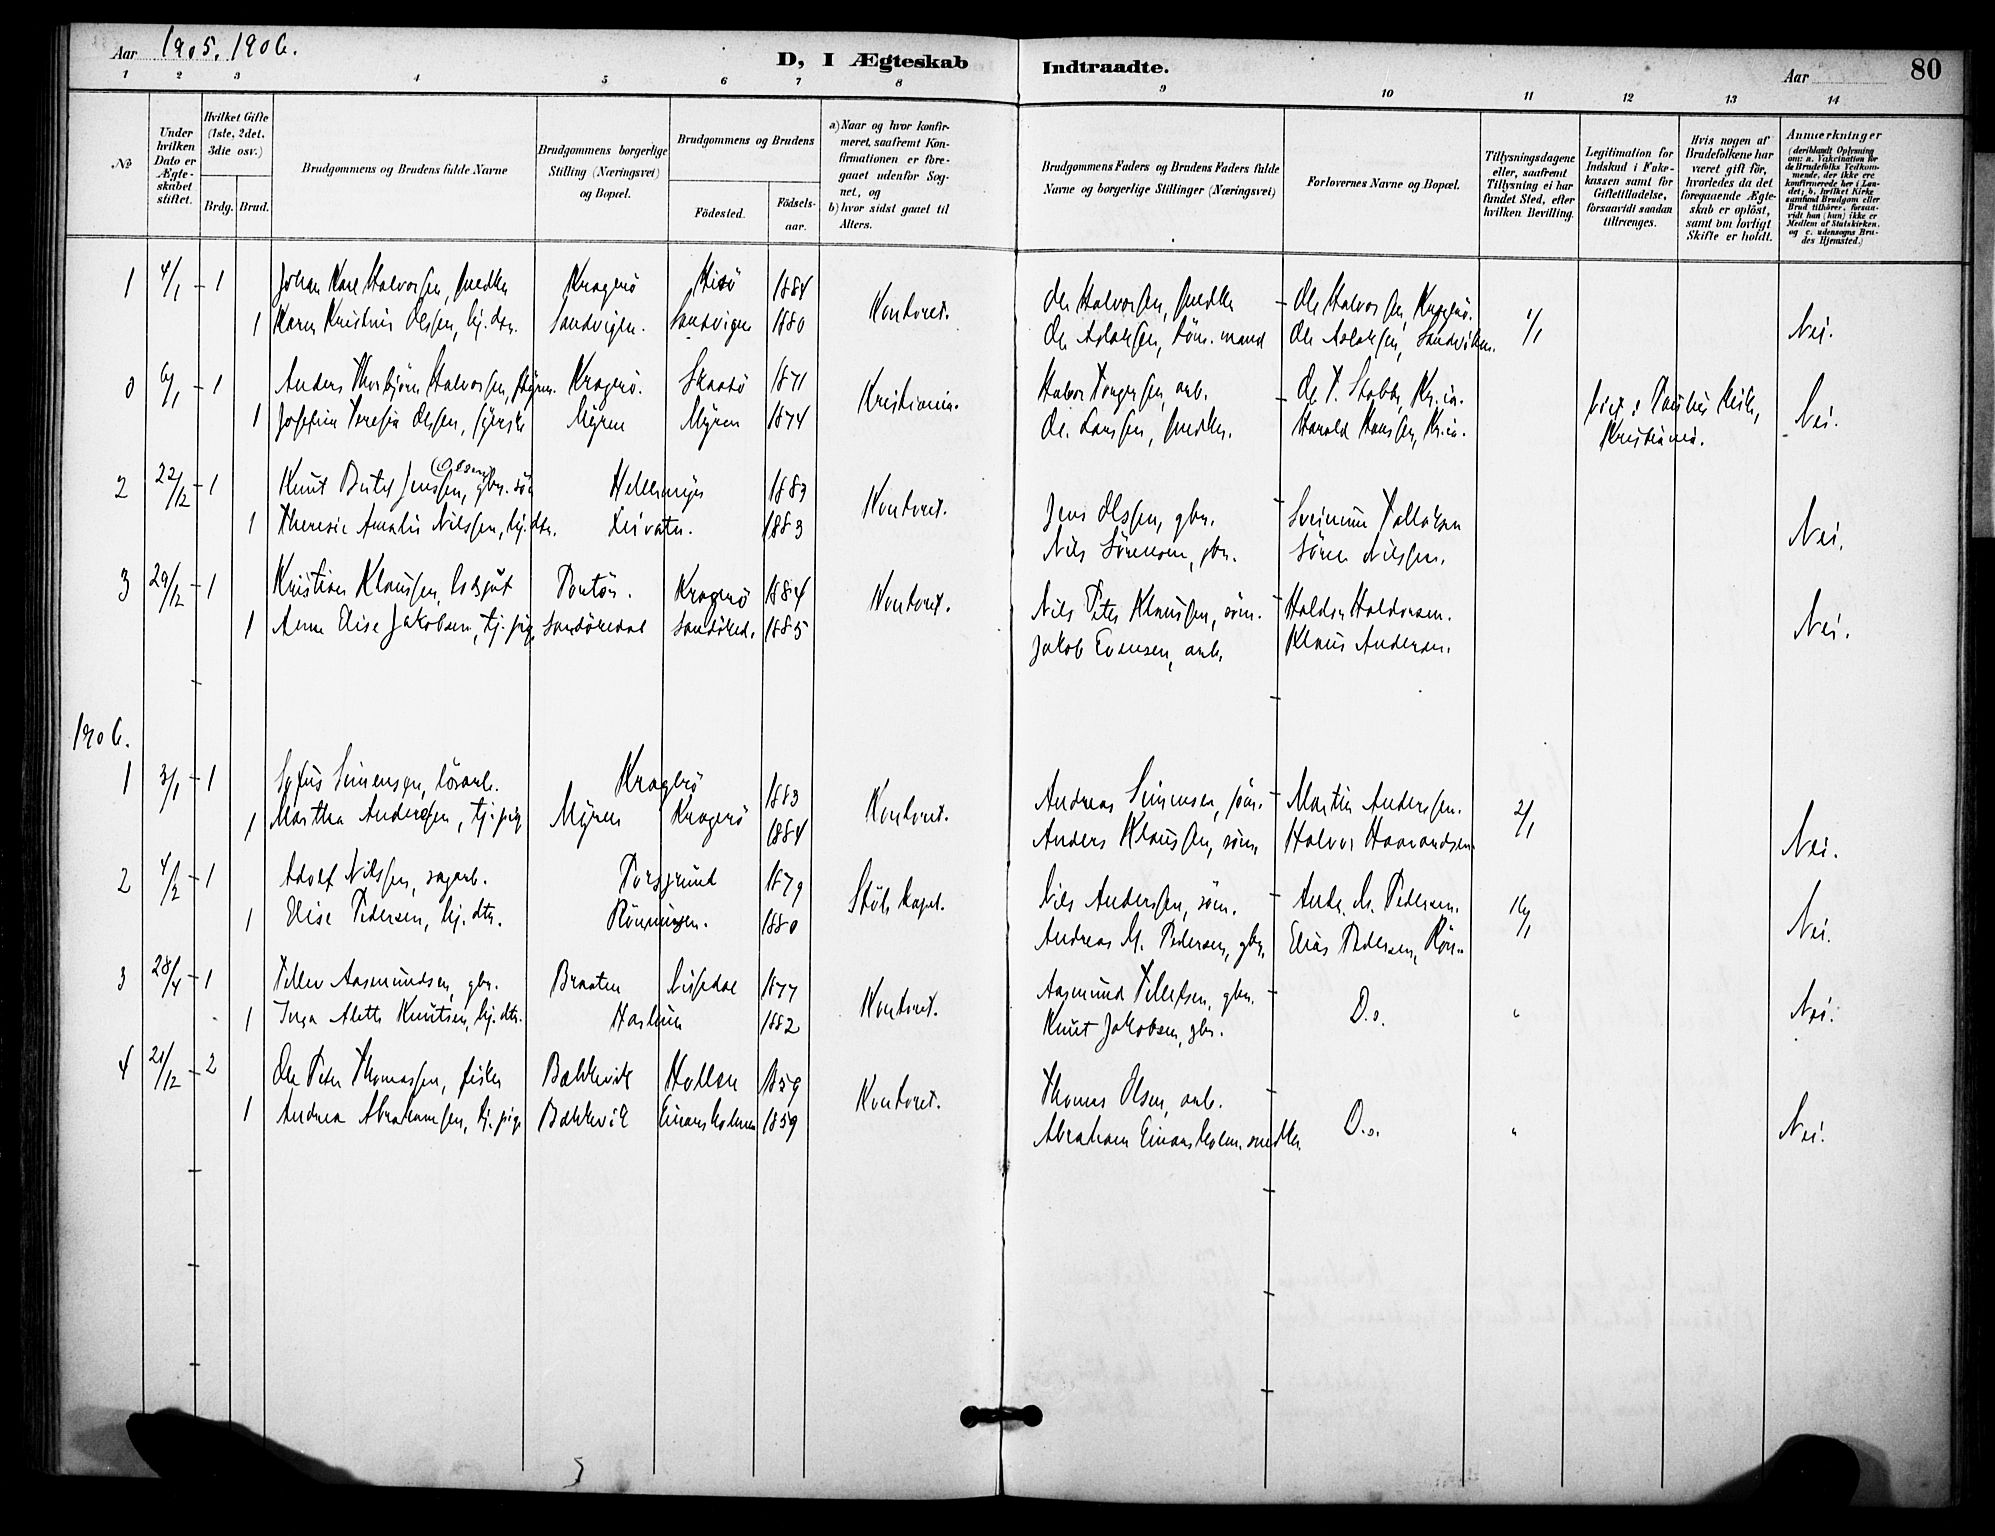 Aar 1905. 1906.
D, I Ægteskab Indtraadte.
Aar
80
1 2 3 4 5 6 7 8 9 10 11 12 13 14
No
Under hvilken Dato er Ægteskabet stiftet.
Hvilket Gifte (1ste, 2det, 3die osv.)
Brdg. Brud.
Brudgommens og Brudens fulde Navne
Brudgommens borgerlige Stilling (Næringsvei) og Bopæl.
Brudgommens og Brudens
Födested.
Födselsaar.
a) Naar og hvor konfirmeret, saafremt Konfirmationen er foregaaet udenfor Sognet, og
b) hvor sidst gaaet til Alters.
Brudgommens Faders og Brudens Faders fulde Navne og borgerlige Stillinger (Næringsvei)
Forlovernes Navne og Bopæl.
Tillysningsdagene eller, saafremt Tillysning ei har fundet Sted, efter hvilken Bevilling.
Legitimation for Indskud i Enkekassen samt for Giftetilladelse, forsaavidt saadan tiltrænges.
Hvis nogen af Brudefolkene har været gift før, hvorledes da det foregaaende Ægteskab er oplöst, samt om lovligt Skifte er holdt.
Anmærkninger
1 4/1 1 Johan Karl Halvorsen, snedker Kragerö Hisö 1884 Kontoret. Ole Halvorsen, snedker Ole Halvorsen, Kragerö. 1/1 Nei.
1 Karen Kristine Olssen, hj. dtr. Sandvigen. Sandvigen 1880 Ole Aslaksen, töm.mand Ole Aslaksen, Sandviken.
0 6/1 1 Anders Thorbjörn Halvorsen, Kragerö. Skaatö 1871 Kristiania. Halvor Torgersen, arb. Ole T. Stabbe, Kr.ia. Kirke, Nei.
1 Josefine Teresia Olssen, syerske Myren Myren 1874 Ole Larssen, snedker. Harald Hanssen, Kr.ia. Kristiania.
2 22/12 1 Knut Jenssen, (Olsen) gbr. sön Hellemyr 1883 Kontoret. Jens Olssen, gbr. Sveinum Tallaksen Nei.
1 Theresie Amalie Nilssen, hj. dtr. Livatn. 1883 Nils Sörensen, gbr. Sören Nilssen.
3 29/12 1 Kristian Klaussen, Portör. Kragerö 1884 Kontoret. Nils Peter Klaussen, söm. Haldor Haldorsen. Nei.
1 Anna Elise Jakobsen, tj. pige Sandökedal Sandöked. 1885 Jakob Evensen, arb. Klaus Andersen.
1906.
1 3/1 1 Sofus Simensen, lösarb. Kragerö 1883 Kontoret. Andreas Simensen, söm. Martin Anderssen. 2/1 Nei.
1 Martha Anderssen, tj. pige Myren Kragerö 1884 Anders Klaussen, söm. Halvor Haavardsen.
2 4/2 1 Adolf Nilssen, sagarb. Porsgrund 1879 Støle kapel. Nils Anderssen, söm. Andr. M. Pedersen. 16/1 Nei.
1 Elise Pedersen, hj. dtr. Rönningen. 1880 Andreas M. Pedersen, gbr. Elias Pedersen, Rön..
3 28/4 1 Tellev Aasmundsen, gbr. Braaten Nissedal 1877 Kontoret. Aasmund Tellefsen, gbr. D.o. " Nei.
1 Inga Alette Knutsen, hj. dtr. Haslum 1882 Knut Jakobsen, gbr.
4 21/12 2 Ole Peter Thomassen, fisker Bakkevik Hollen 1859 Kontoret. Thomas Olsen, arb. D.o. " Nei.
1 Andrea Abrahamsen, tj. pige Bakkevik Einarsholmen 1859 Abraham Einarsholm. snedker